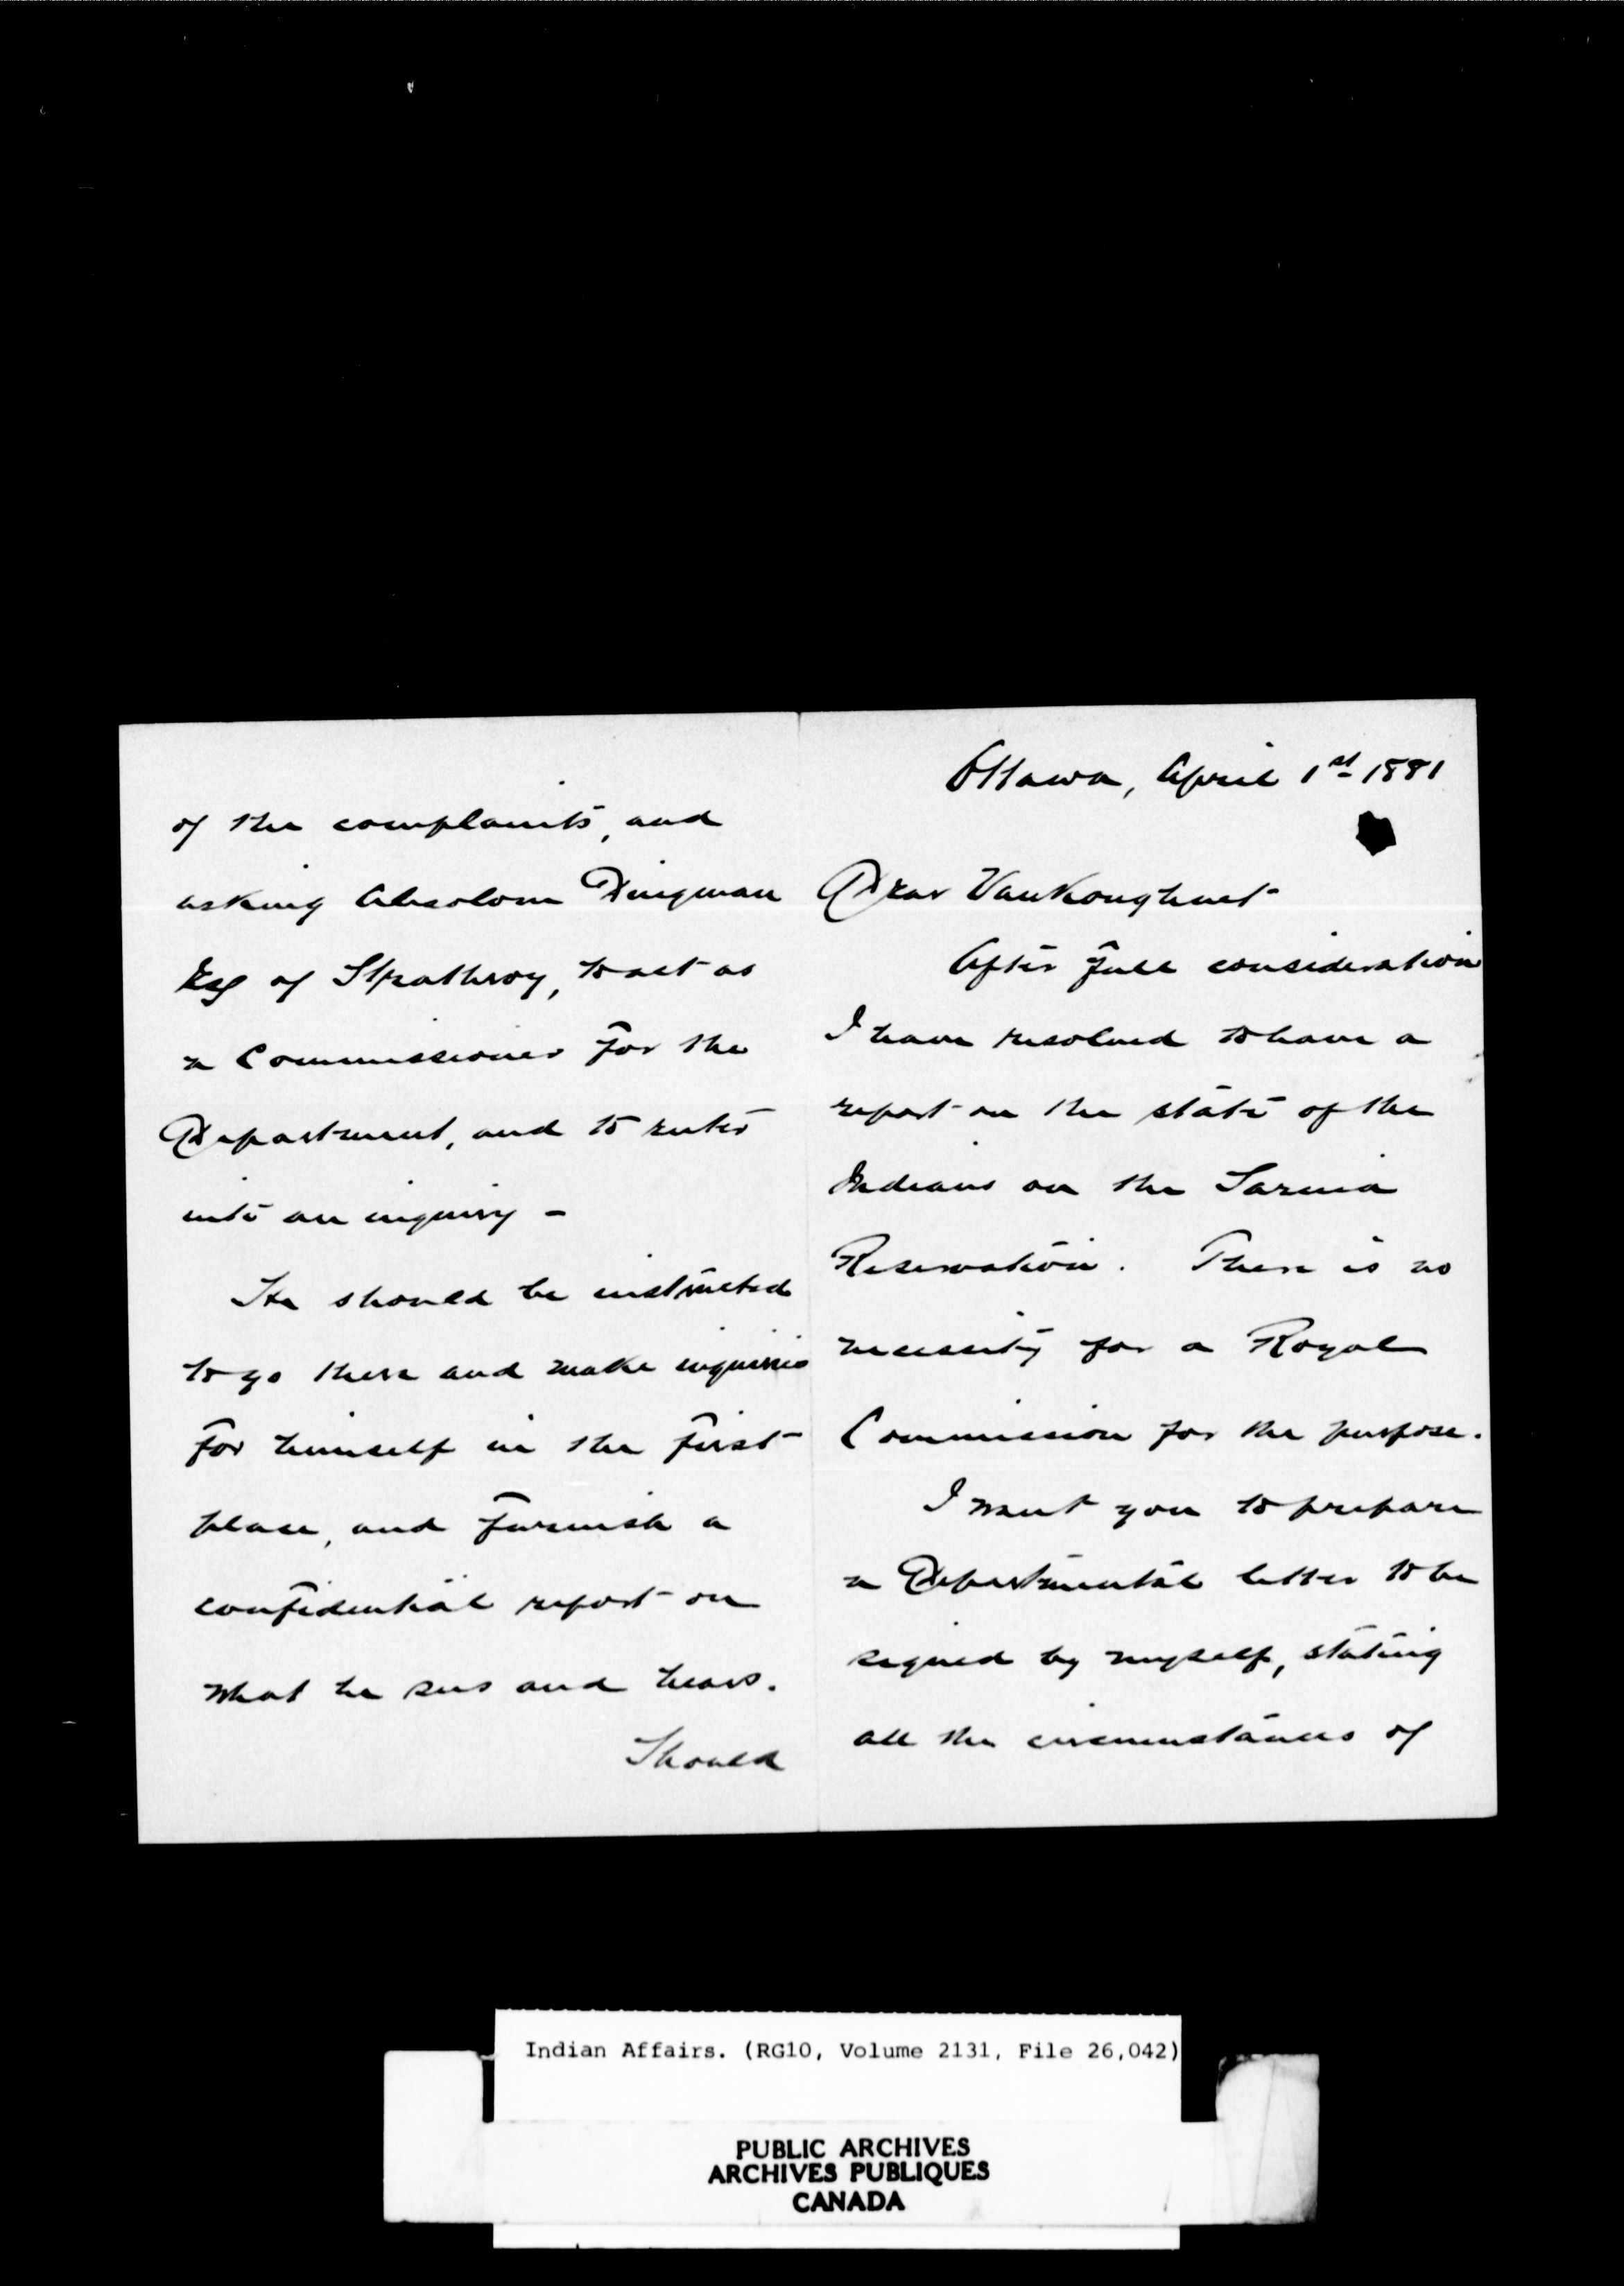 Ottawa, April 1st 1881
Dear Vankoughnet
After full consideration
I have resolved to have a
report on the state of the
Indians on the Sarnia
Reservation. There is no
necessity for a Royal
Commission for the purpose.
I want you to prepare
a Departmental letter to be
signed by myself, stating
all the circumstances of
of the complaints, and
asking Absolom Dingman
Esq of Strathroy, to act as
a Commissioner for the
Department, and to enter
into an inquiry -
He should be instructed
to go there and make inquiries
for himself in the first
place, and furnish a
confidential report on
what he sees and hears.
Should
Indian Affairs. (RG10, Volume 2131, File 26,042)
PUBLIC ARCHIVES
ARCHIVES PUBLIQUES
CANADA